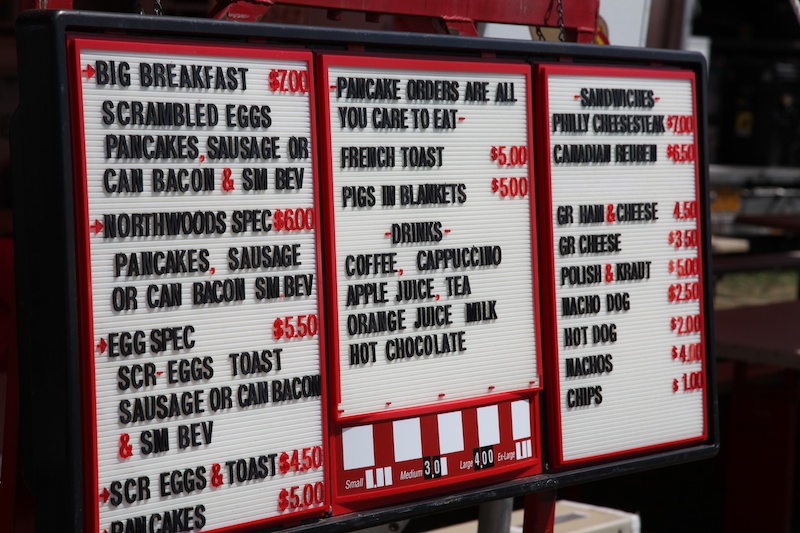 BIG BREAKFAST $7.00
SCRAMBLED EGGS
PANCAKES, SAUSAGE OR
CAN BACON & SM BEV
NORTHWOODS SPEC $6.00
PANCAKES, SAUSAGE
OR CAN BACON SM.BEV
EGG SPEC $5.50
SCR-EGGS TOAST
SAUSAGE OR CAN BACON
& SM BEV
SCR EGGS & TOAST $4.50
PANCAKES $5.00
-PANCAKE ORDERS ARE ALL
YOU CARE TO EAT-
FRENCH TOAST $5.00
PIGS IN BLANKETS $500
-DRINKS-
COFFEE, CAPPUCCINO
APPLE JUICE, TEA
ORANGE JUICE MILK
HOT CHOCOLATE
Small Medium 3.0 Large 4.00 Ex-Large
-SANDWICHES-
PHILLY CHEESESTEAK $7.00
CANADIAN REUBEN $6.50
GR HAM & CHEESE 4.50
GR CHEESE $3.50
POLISH & KRAUT $5.00
NACHO DOG $2.50
HOT DOG $2.00
NACHOS $4.00
CHIPS $1.00